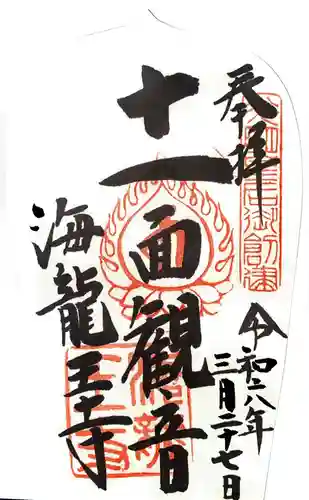 奉拝
十一面観音
海龍王寺
令和六年
三月二十七日